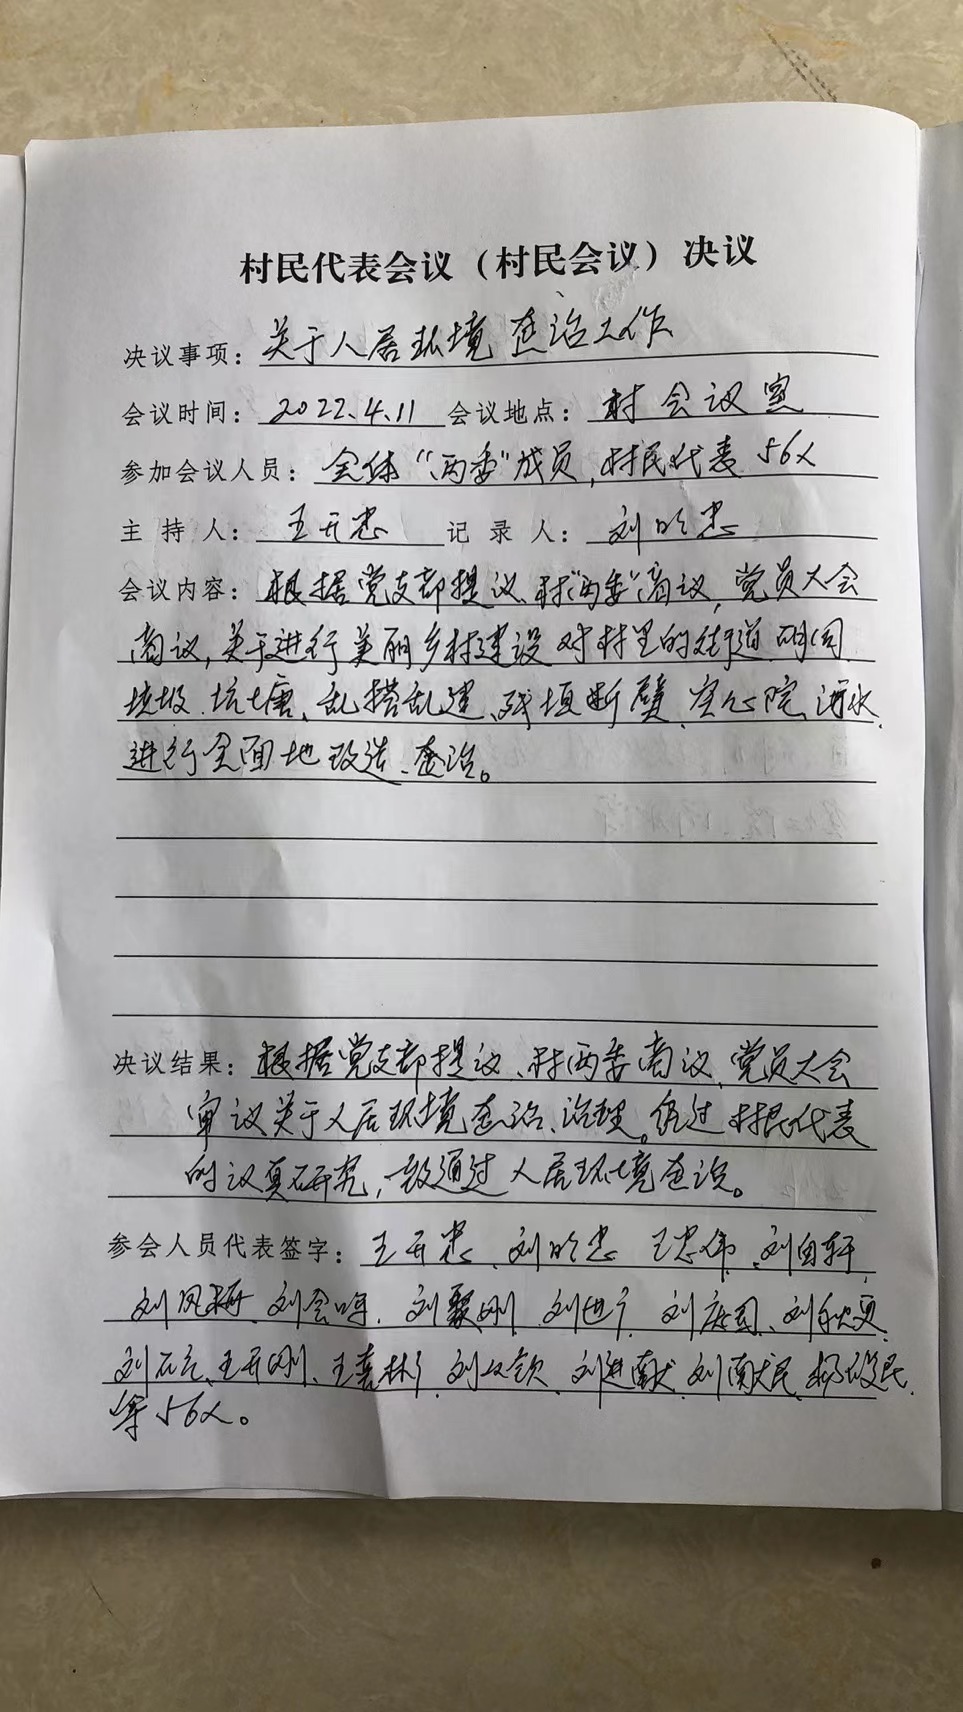 村民代表会议（村民会议）决议
决议事项：关于人居环境整治工作
会议时间：2022.4.11 会议地点：村会议室
参加会议人员：全体“两委”成员，村民代表56人
主持人：王开忠 记录人：刘明忠
会议内容：根据党支部提议、村“两委”商议，党员大会
商议，关于进行美丽乡村建设对村里的街道、胡同
垃圾、坑塘、乱搭乱建、残垣断壁、空心院、污水
进行全面地改造、整治。
决议结果：根据党支部提议、村两委商议、党员大会
审议关于人居环境整治、治理。经过村民代表
的认真研究，一致通过人居环境整治。
参会人员代表签字：王开忠、刘明忠 王忠伟、刘自轩
刘凤梅、刘会、刘聚刚、刘、刘、刘
刘、王开刚、王、刘、刘进献、刘献民、杨民
等56人。